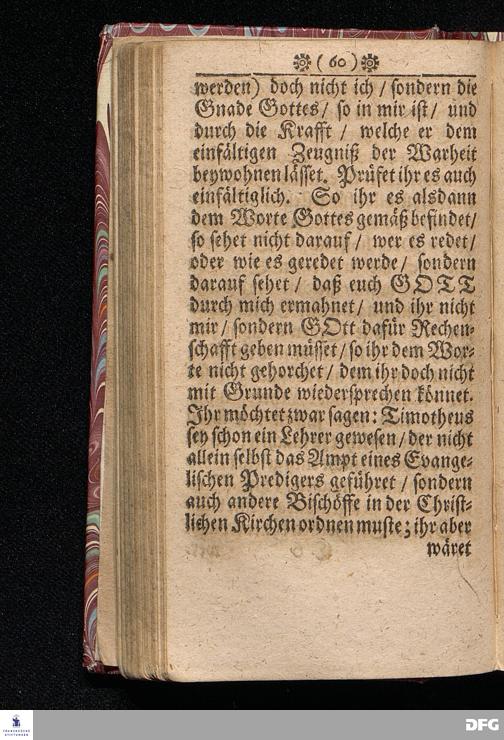 ( 60 )
werden) doch nicht ich / sondern die
Gnade Gottes / so in mir ist / und
durch die Krafft / welche er dem
einfältigen Zeugniß der Warheit
beywohnen lässet. Prüfet ihr es auch
einfältiglich. So ihr es alsdann
dem Worte Gottes gemäß befindet /
so sehet nicht darauf / wer es redet /
oder wie es geredet werde / sondern
darauf sehet / daß euch GOTT
durch mich ermahnet / und ihr nicht
mir / sondern GOtt dafür Rechen-
schafft geben müsset / so ihr dem Wor-
te nicht gehorchet / dem ihr doch nicht
mit Grunde wiedersprechen könnet.
Ihr möchtet zwar sagen: Timotheus
sey schon ein Lehrer gewesen / der nicht
allein selbst das Ampt eines Evange-
lischen Predigers geführet / sondern
auch andere Bischöffe in der Christ-
lichen Kirchen ordnen muste; ihr aber
wäret
FRANCKESCHE
STIFTUNGEN
DFG